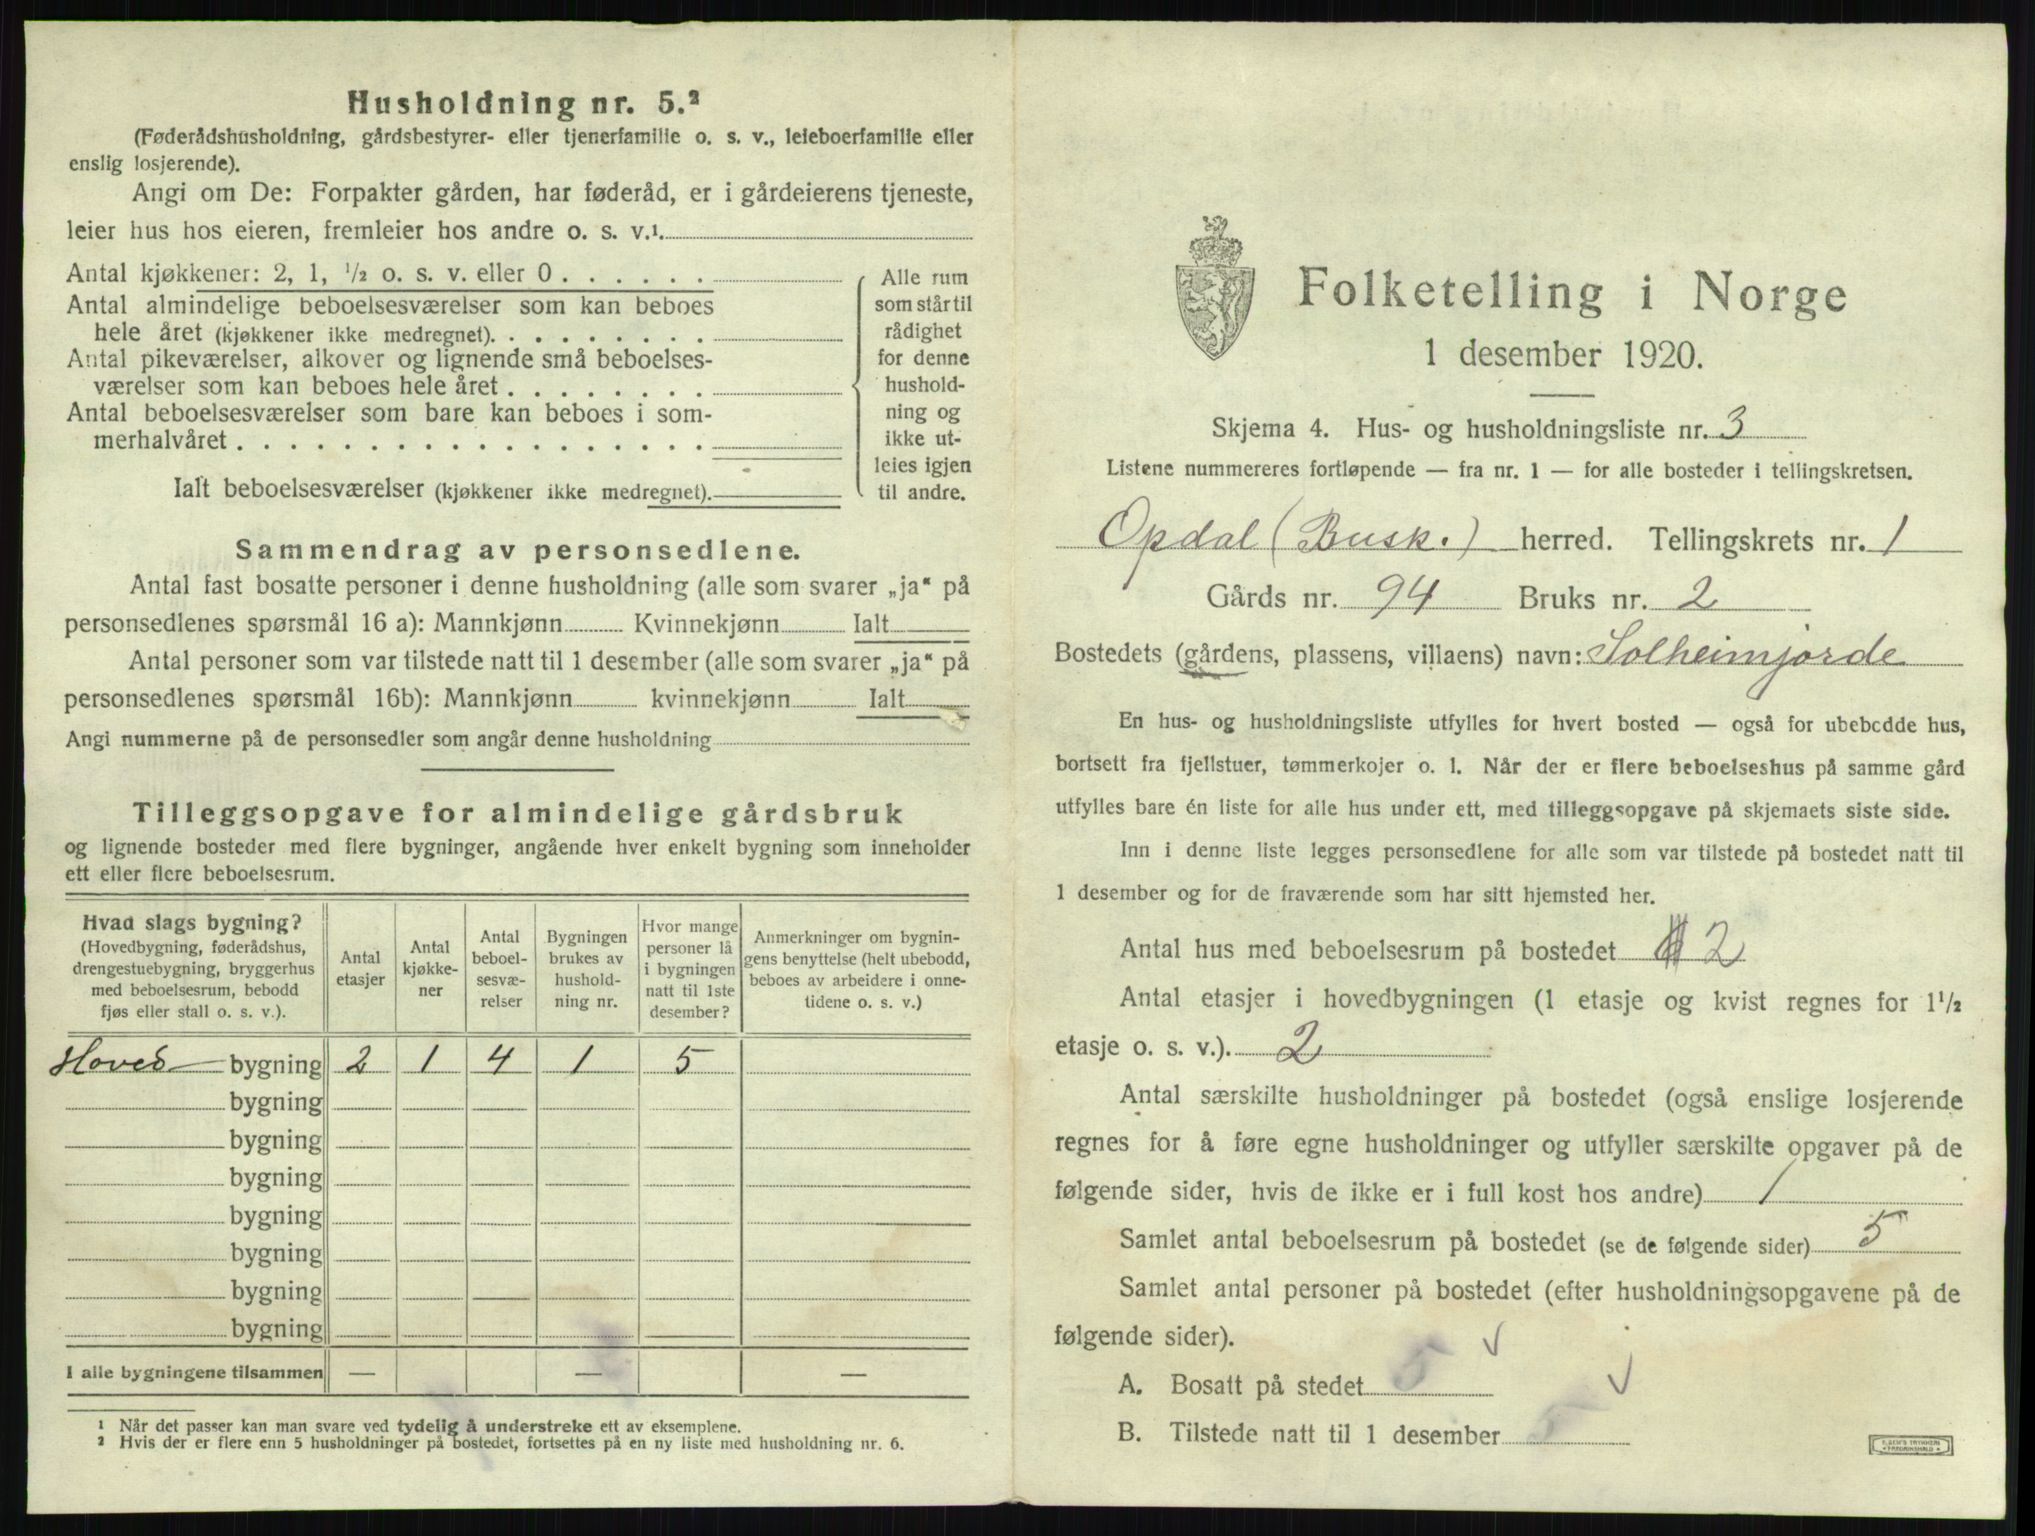 Husholdning nr. 5.²
(Føderådshusholdning, gårdsbestyrer- eller tjenerfamilie o. s. v., leieboerfamilie eller
enslig losjerende).
Angi om De: Forpakter gården, har føderåd, er i gårdeierens tjeneste,
leier hus hos eieren, fremleier hos andre o. s. v.¹
Antal kjøkkener: 2, 1, ½ o. s. v. eller 0 . . . . . .
Antal almindelige beboelsesværelser som kan beboes
hele året (kjøkkener ikke medregnet). . . . . . . . .
Antal pikeværelser, alkover og lignende små beboelses-
værelser som kan beboes hele året . . . . . . . .
Antal beboelsesværelser som bare kan beboes i som-
merhalvåret . . . . . . . . . . . . . . . . . .
Ialt beboelsesværelser (kjøkkener ikke medregnet).
Alle rum
som står til
rådighet
for denne
hushold-
ning og
ikke ut-
leies igjen
til andre.
Sammendrag av personsedlene.
Antal fast bosatte personer i denne husholdning (alle som svarer „ja“ på
personsedlenes spørsmål 16 a): Mannkjønn Kvinnekjønn Ialt
Antal personer som var tilstede natt til 1 desember (alle som svarer „ja“ på
personsedlenes spørsmål 16b): Mannkjønn kvinnekjønn Ialt
Angi nummerne på de personsedler som angår denne husholdning
Tilleggsopgave for almindelige gårdsbruk
og lignende bosteder med flere bygninger, angående hver enkelt bygning som inneholder
ett eller flere beboelsesrum.
Hvad slags bygning?
(Hovedbygning, føderådshus,
drengestuebygning, bryggerhus
med beboelsesrum, bebodd
fjøs eller stall o. s. v.).
Antal
etasjer
Antal
kjøkke-
ner
Antal
beboel-
sesvæ-
relser
Bygningen
brukes av
hushold-
ning nr.
Hvor mange
personer lå
i bygningen
natt til 1ste
desember?
Anmerkninger om bygnin-
gens benyttelse (helt ubebodd,
beboes av arbeidere i onne-
tidene o. s. v.)
Hoved bygning 2 1 4 1 5
bygning
bygning
bygning
bygning
bygning
bygning
bygning
I alle bygningene tilsammen — — —
¹ Når det passer kan man svare ved tydelig å understreke ett av eksemplene.
² Hvis der er flere enn 5 husholdninger på bostedet, fortsettes på en ny liste med husholdning nr. 6.
Folketelling i Norge
1 desember 1920.
Skjema 4. Hus- og husholdningsliste nr. 3
Listene nummereres fortløpende — fra nr. 1 — for alle bosteder i tellingskretsen.
Opdal (Busk.) herred. Tellingskrets nr. 1
Gårds nr. 94 Bruks nr. 2
Bostedets (gårdens, plassens, villaens) navn: Solheimjorde
En hus- og husholdningsliste utfylles for hvert bosted — også for ubebodde hus,
bortsett fra fjellstuer, tømmerkojer o. l. Når der er flere beboelseshus på samme gård
utfylles bare én liste for alle hus under ett, med tilleggsopgave på skjemaets siste side.
Inn i denne liste legges personsedlene for alle som var tilstede på bostedet natt til
1 desember og for de fraværende som har sitt hjemsted her.
Antal hus med beboelsesrum på bostedet 2
Antal etasjer i hovedbygningen (1 etasje og kvist regnes for 1½
etasje o. s. v.). 2
Antal særskilte husholdninger på bostedet (også enslige losjerende
regnes for å føre egne husholdninger og utfyller særskilte opgaver på de
følgende sider, hvis de ikke er i full kost hos andre) 1
Samlet antal beboelsesrum på bostedet (se de følgende sider) 5
Samlet antal personer på bostedet (efter husholdningsopgavene på de
følgende sider).
A. Bosatt på stedet 5 ✓
B. Tilstede natt til 1 desember 5 ✓